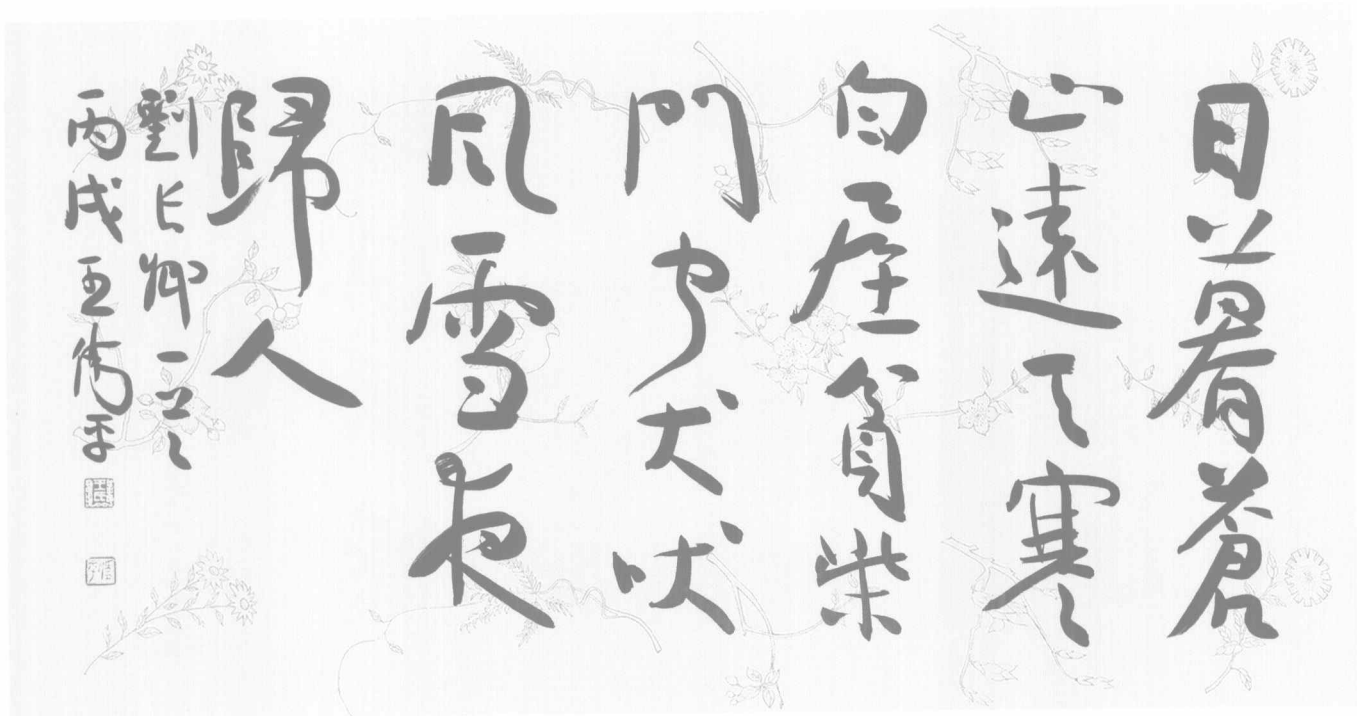 日暮蒼
山遠天寒
白屋貧柴
門聞犬吠
風雪夜
歸人
劉長卿一首
丙戌王偉平